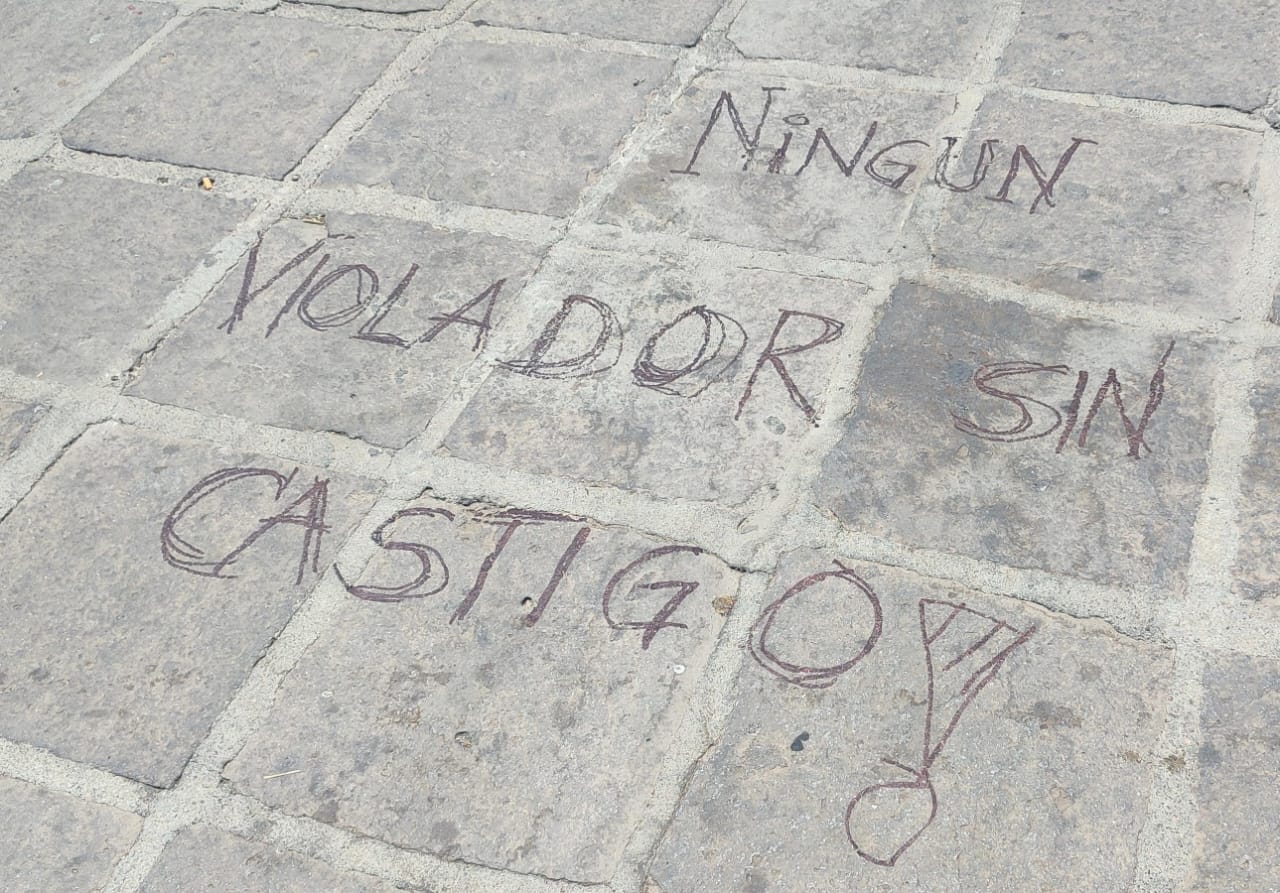 NiNGUN
VIOLADOR SIN
CASTIGO!